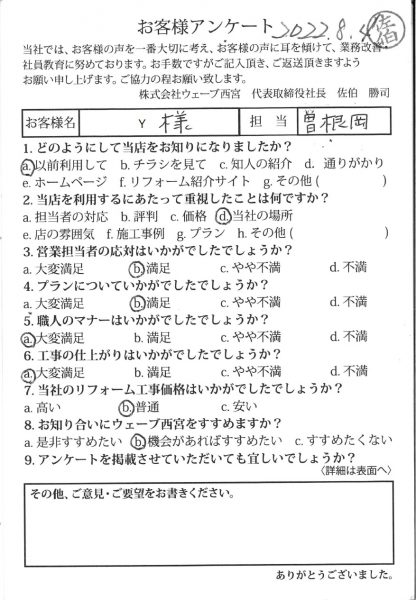 お客様アンケート 2022.8.4 佐伯
当社では、お客様の声を一番大切に考え、お客様の声に耳を傾けて、業務改善・
社員教育に努めております。お手数ですがご記入頂き、ご返送頂きますよう
お願い申し上げます。ご協力の程お願い致します。
株式会社ウェーブ西宮 代表取締役社長 佐伯 勝司
お客様名 Y 様 担当 曽根岡
1. どのようにして当店をお知りになりましたか？
a. 以前利用して b. チラシを見て c. 知人の紹介 d. 通りがかり
e. ホームページ f. リフォーム紹介サイト g. その他 ( )
2. 当店を利用するにあたって重視したことは何ですか？
a. 担当者の対応 b. 評判 c. 価格 d. 当社の場所
e. 店の雰囲気 f. 施工事例 g. プラン h. その他 ( )
3. 営業担当者の応対はいかがでしたでしょうか？
a. 大変満足 b. 満足 c. やや不満 d. 不満
4. プランについていかがでしたでしょうか？
a. 大変満足 b. 満足 c. やや不満 d. 不満
5. 職人のマナーはいかがでしたでしょうか？
a. 大変満足 b. 満足 c. やや不満 d. 不満
6. 工事の仕上がりはいかがでしたでしょうか？
a. 大変満足 b. 満足 c. やや不満 d. 不満
7. 当社のリフォーム工事価格はいかがでしたでしょうか？
a. 高い b. 普通 c. 安い
8. お知り合いにウェーブ西宮をすすめますか？
a. 是非すすめたい b. 機会があればすすめたい c. すすめたくない
9. アンケートを掲載させていただいても宜しいでしょうか？
〈詳細は表面へ〉
その他、ご意見・ご要望をお書きください。
ありがとうございました。